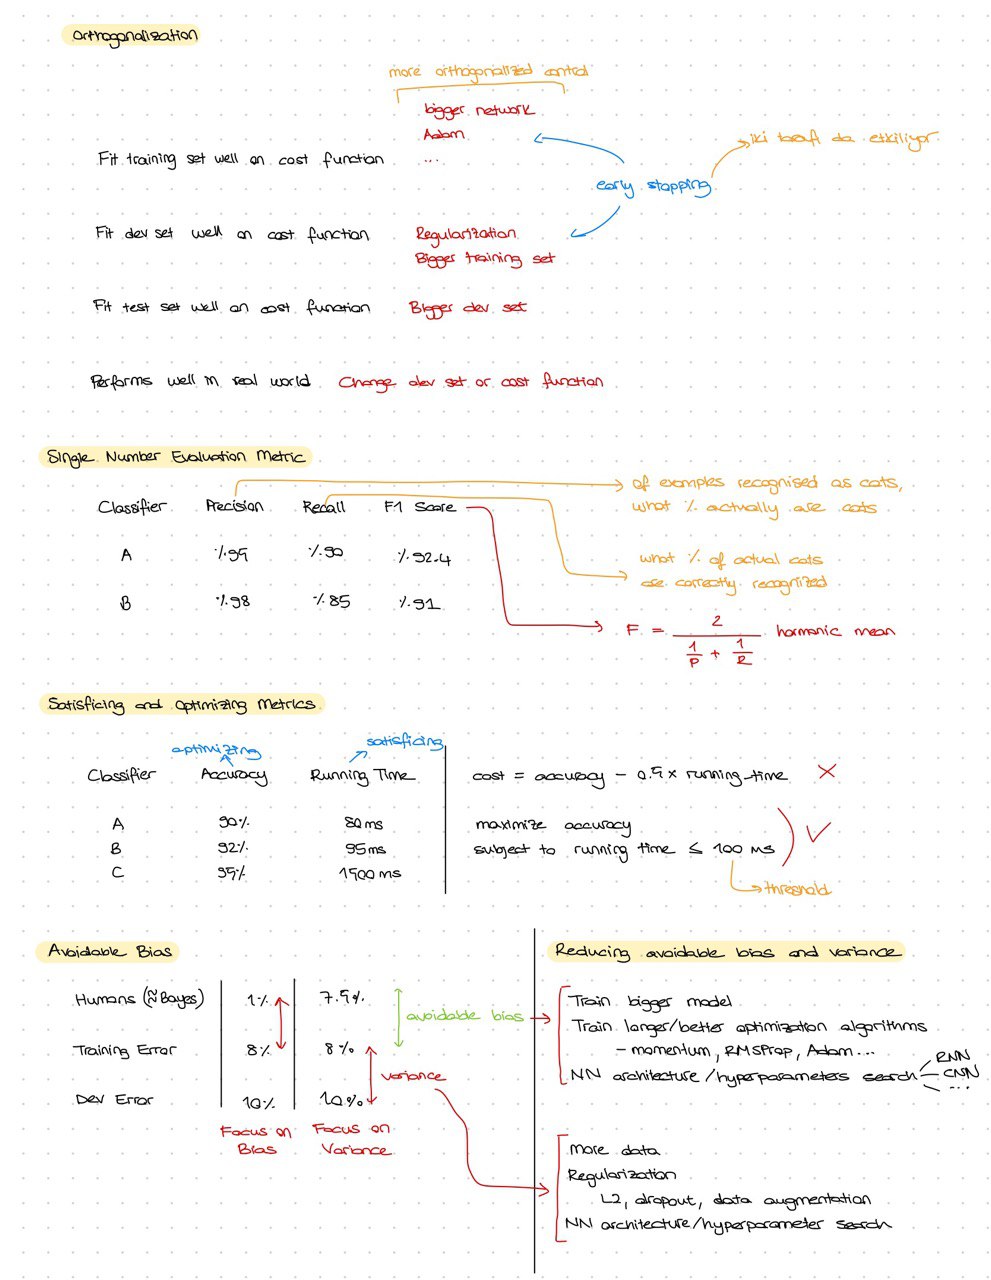 Orthogonalization
more orthogonalized control
bigger network
Adam
Fit training set well on cost function ...
iki tarafı da etkiliyor.
early stopping
Fit dev set well on cost function Regularization
Bigger training set
Fit test set well on cost function Bigger dev set
Performs well in real world Change dev set or cost function
Single Number Evaluation Metric
Classifier Precision Recall F1 Score
of examples recognised as cats,
what % actually are cats
A %95 %90 %92.4
what % of actual cats
are correctly recognized
B %98 %85 %91
F = 2 / (1/P + 1/R) harmonic mean
Satisficing and Optimizing Metrics
optimizing satisficing
Classifier Accuracy Running Time
cost = accuracy - 0.5 x running-time X
A 90% 80ms
B 92% 95ms
C 95% 1500ms
maximize accuracy
subject to running time ≤ 100 ms
threshold
Avoidable Bias
Humans (≈Bayes) 1% 7.5%
avoidable bias
Training Error 8% 8%
variance
Dev Error 10% 10%
Focus on Bias
Focus on Variance
Reducing avoidable bias and variance
Train bigger model
Train longer/better optimization algorithms
- momentum, RMSProp, Adam...
NN architecture/hyperparameters search
RNN
CNN
...
more data
Regularization
L2, dropout, data augmentation
NN architecture/hyperparameter search